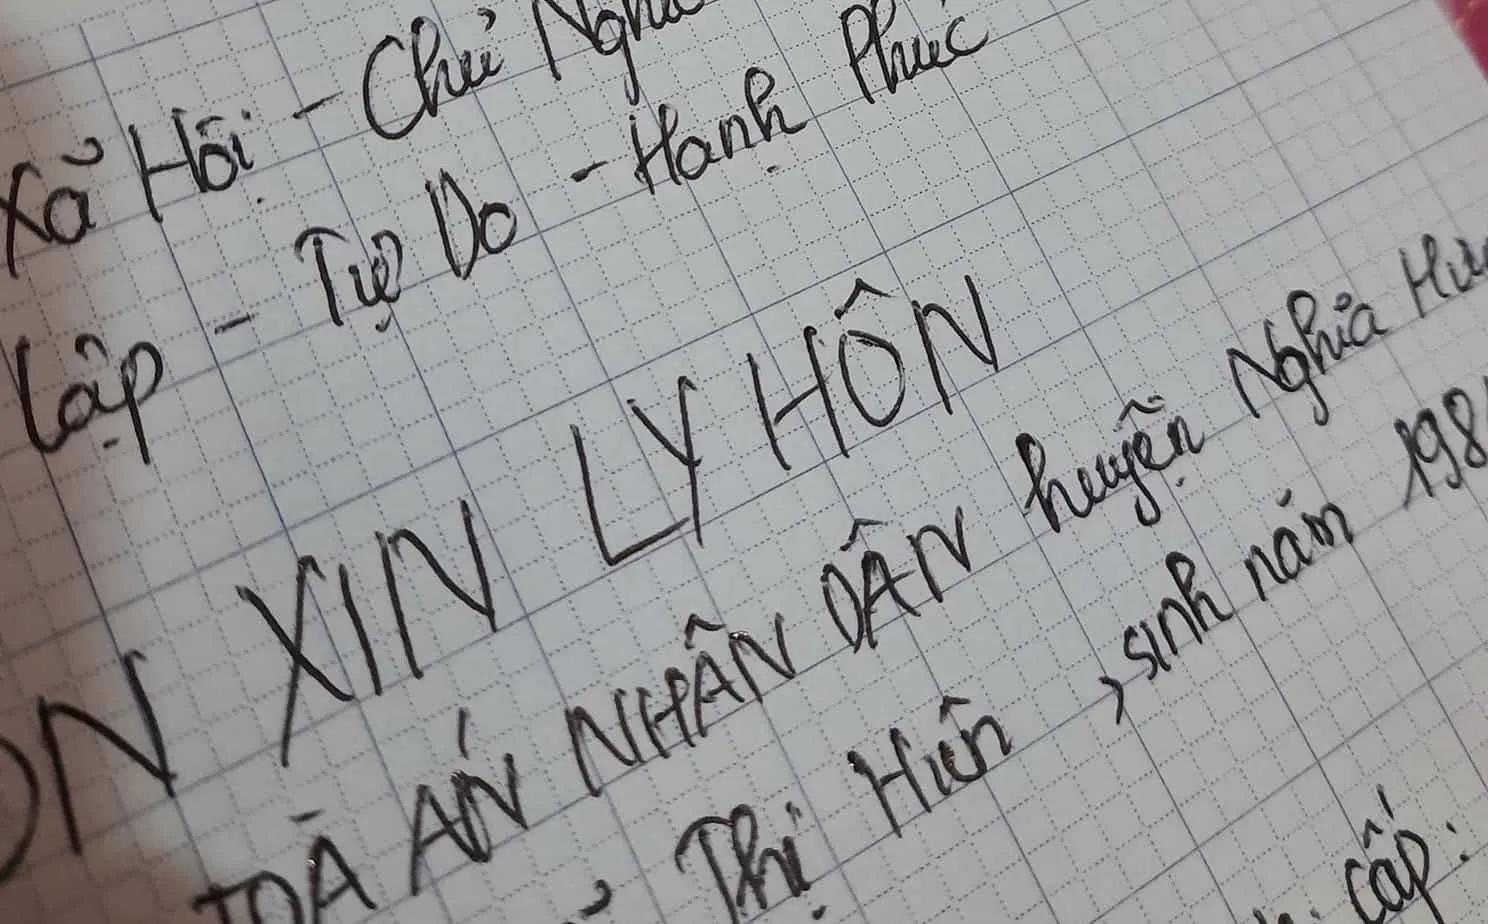 Xã Hội - Chủ Nghĩa
Lập - Tự Do - Hạnh Phúc
ĐƠN XIN LY HÔN
TOÀ ÁN NHÂN DÂN huyện Nghĩa Hưn
Thị Hiên, sinh năm 198
cấp: